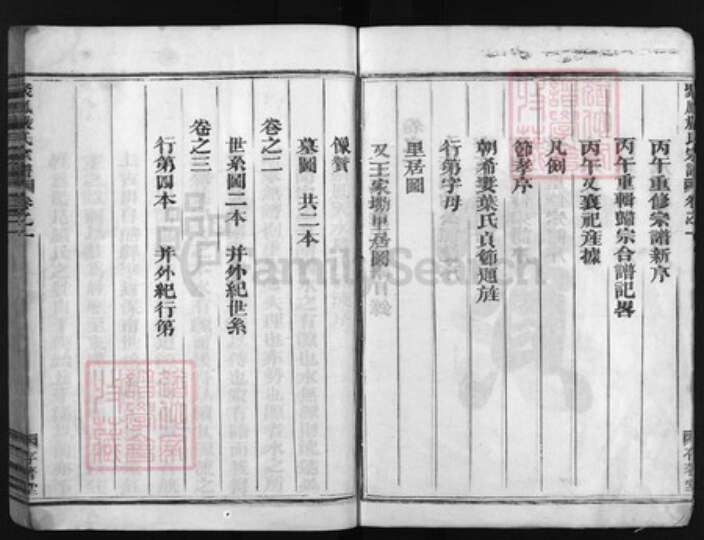 丙午重修宗譜新序
丙午重輯歸宗合譜記畧
丙午又襄祀產據
凡例
節孝序
朝希妻葉氏貞節題旌
行第字母
里居圖
又王家塘里居圖
像贊
墓圖 共二本
卷之二
世系圖二本 并外紀世系
卷之三
行第四本 并外紀行第
FamilySearch